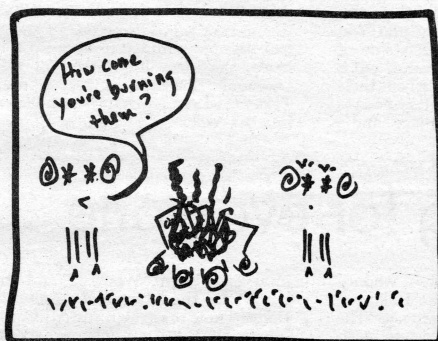 How come
you're burning
them?